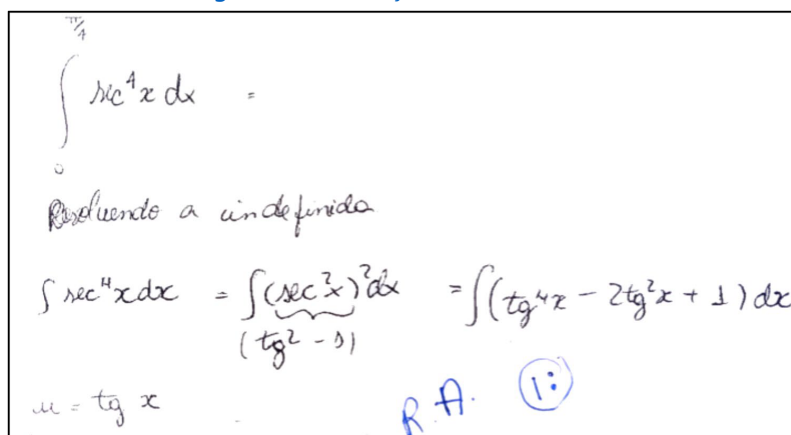 π/4
∫ sec⁴x dx =
0
Resolvendo a indefinida
∫ sec⁴x dx = ∫(sec²x)²dx = ∫(tg⁴x - 2tg²x + 1) dx
(tg² - 1)
u = tg x
R.A. 1: